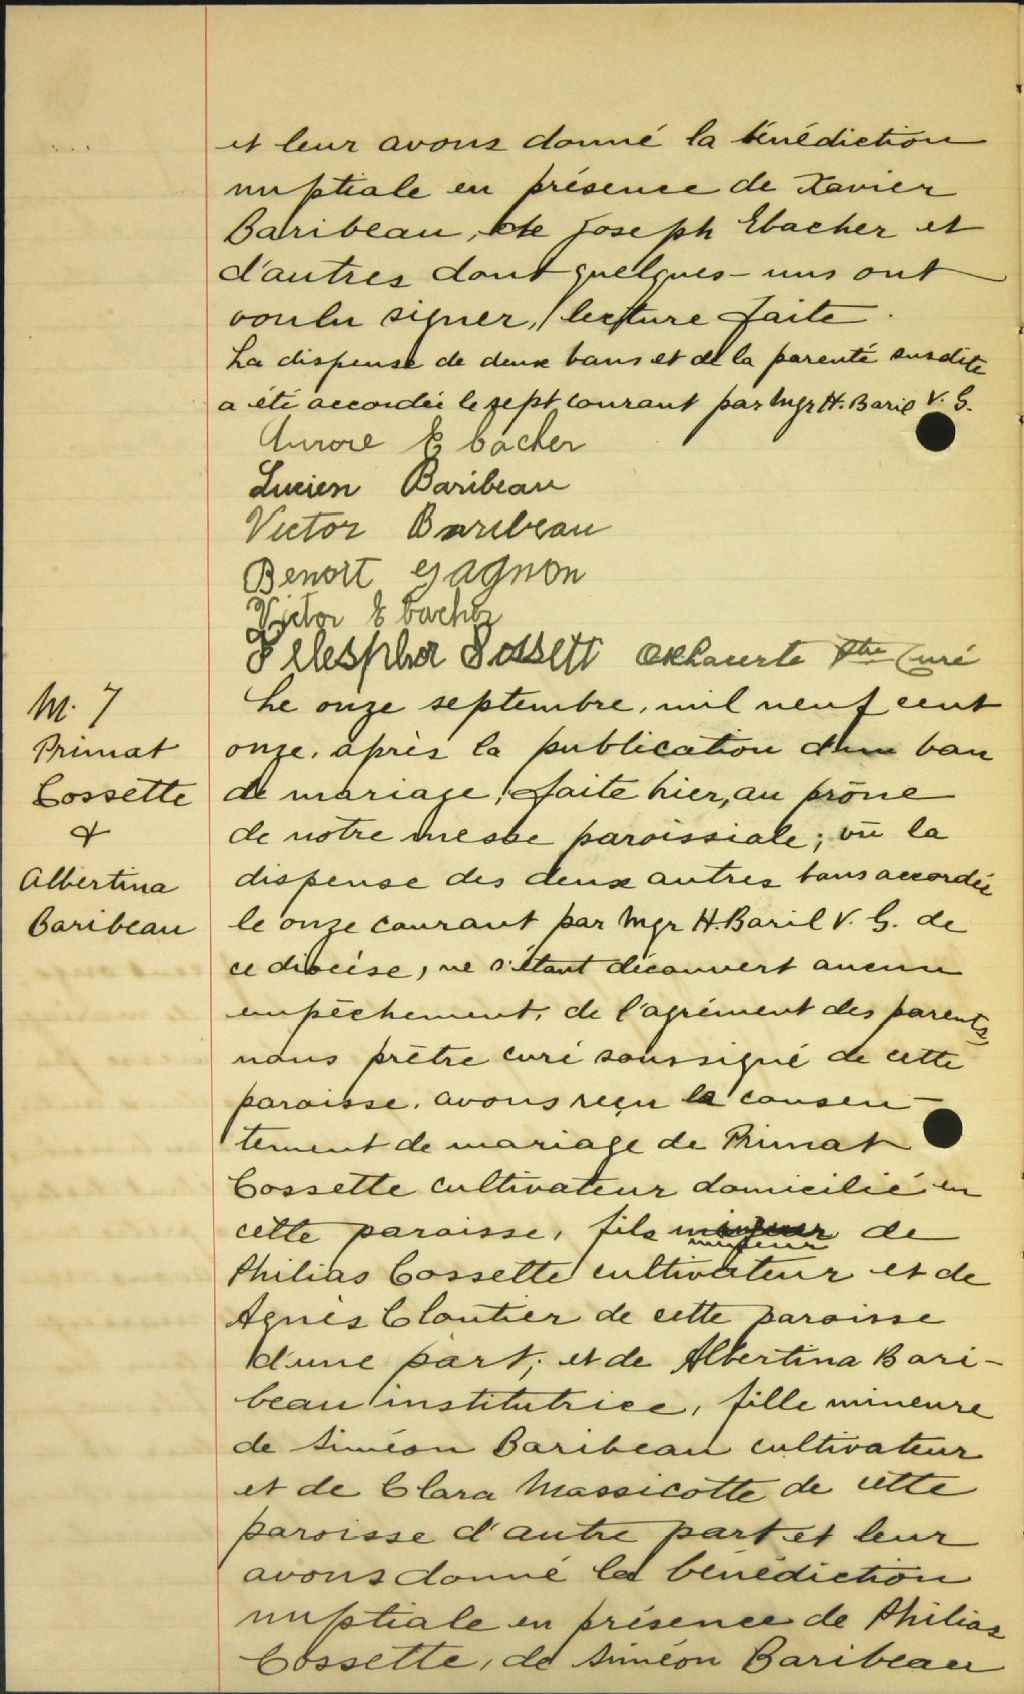 et leur avons donné la bénédiction
nuptiale en présence de Xavier
Baribeau, de Joseph Ebacher et
d'autres dont quelques-uns ont
voulu signer, lecture faite.
La dispense de deux bans et de la parenté susdite
a été accordée le sept courant par Mgr H. Baril V. G.
Aurore Ebacher
Lucien Baribeau
Victor Baribeau
Benoit Gagnon
Victor Ebacher
Ptre Curé
M. 7
Primat
Cossette
&
Albertina
Baribeau
Le onze septembre, mil neuf cent
onze, après la publication d'un ban
de mariage, faite hier, au prône
de notre messe paroissiale; vû la
dispense des deux autres bans accordée
le onze courant par Mgr H. Baril V. G. de
ce diocèse, ne s'étant découvert aucun
empêchement, de l'agrément des parents,
nous prêtre curé soussigné de cette
paroisse, avons reçu le consen-
tement de mariage de Primat
Cossette cultivateur domicilié en
cette paroisse, fils mineur de
Philias Cossette cultivateur et de
Agnès Cloutier de cette paroisse
d'une part; et de Albertina Bari-
beau institutrice, fille mineure
de Siméon Baribeau cultivateur
et de Clara Massicotte de cette
paroisse d'autre part et leur
avons donné la bénédiction
nuptiale en présence de Philias
Cossette, de Siméon Baribeau